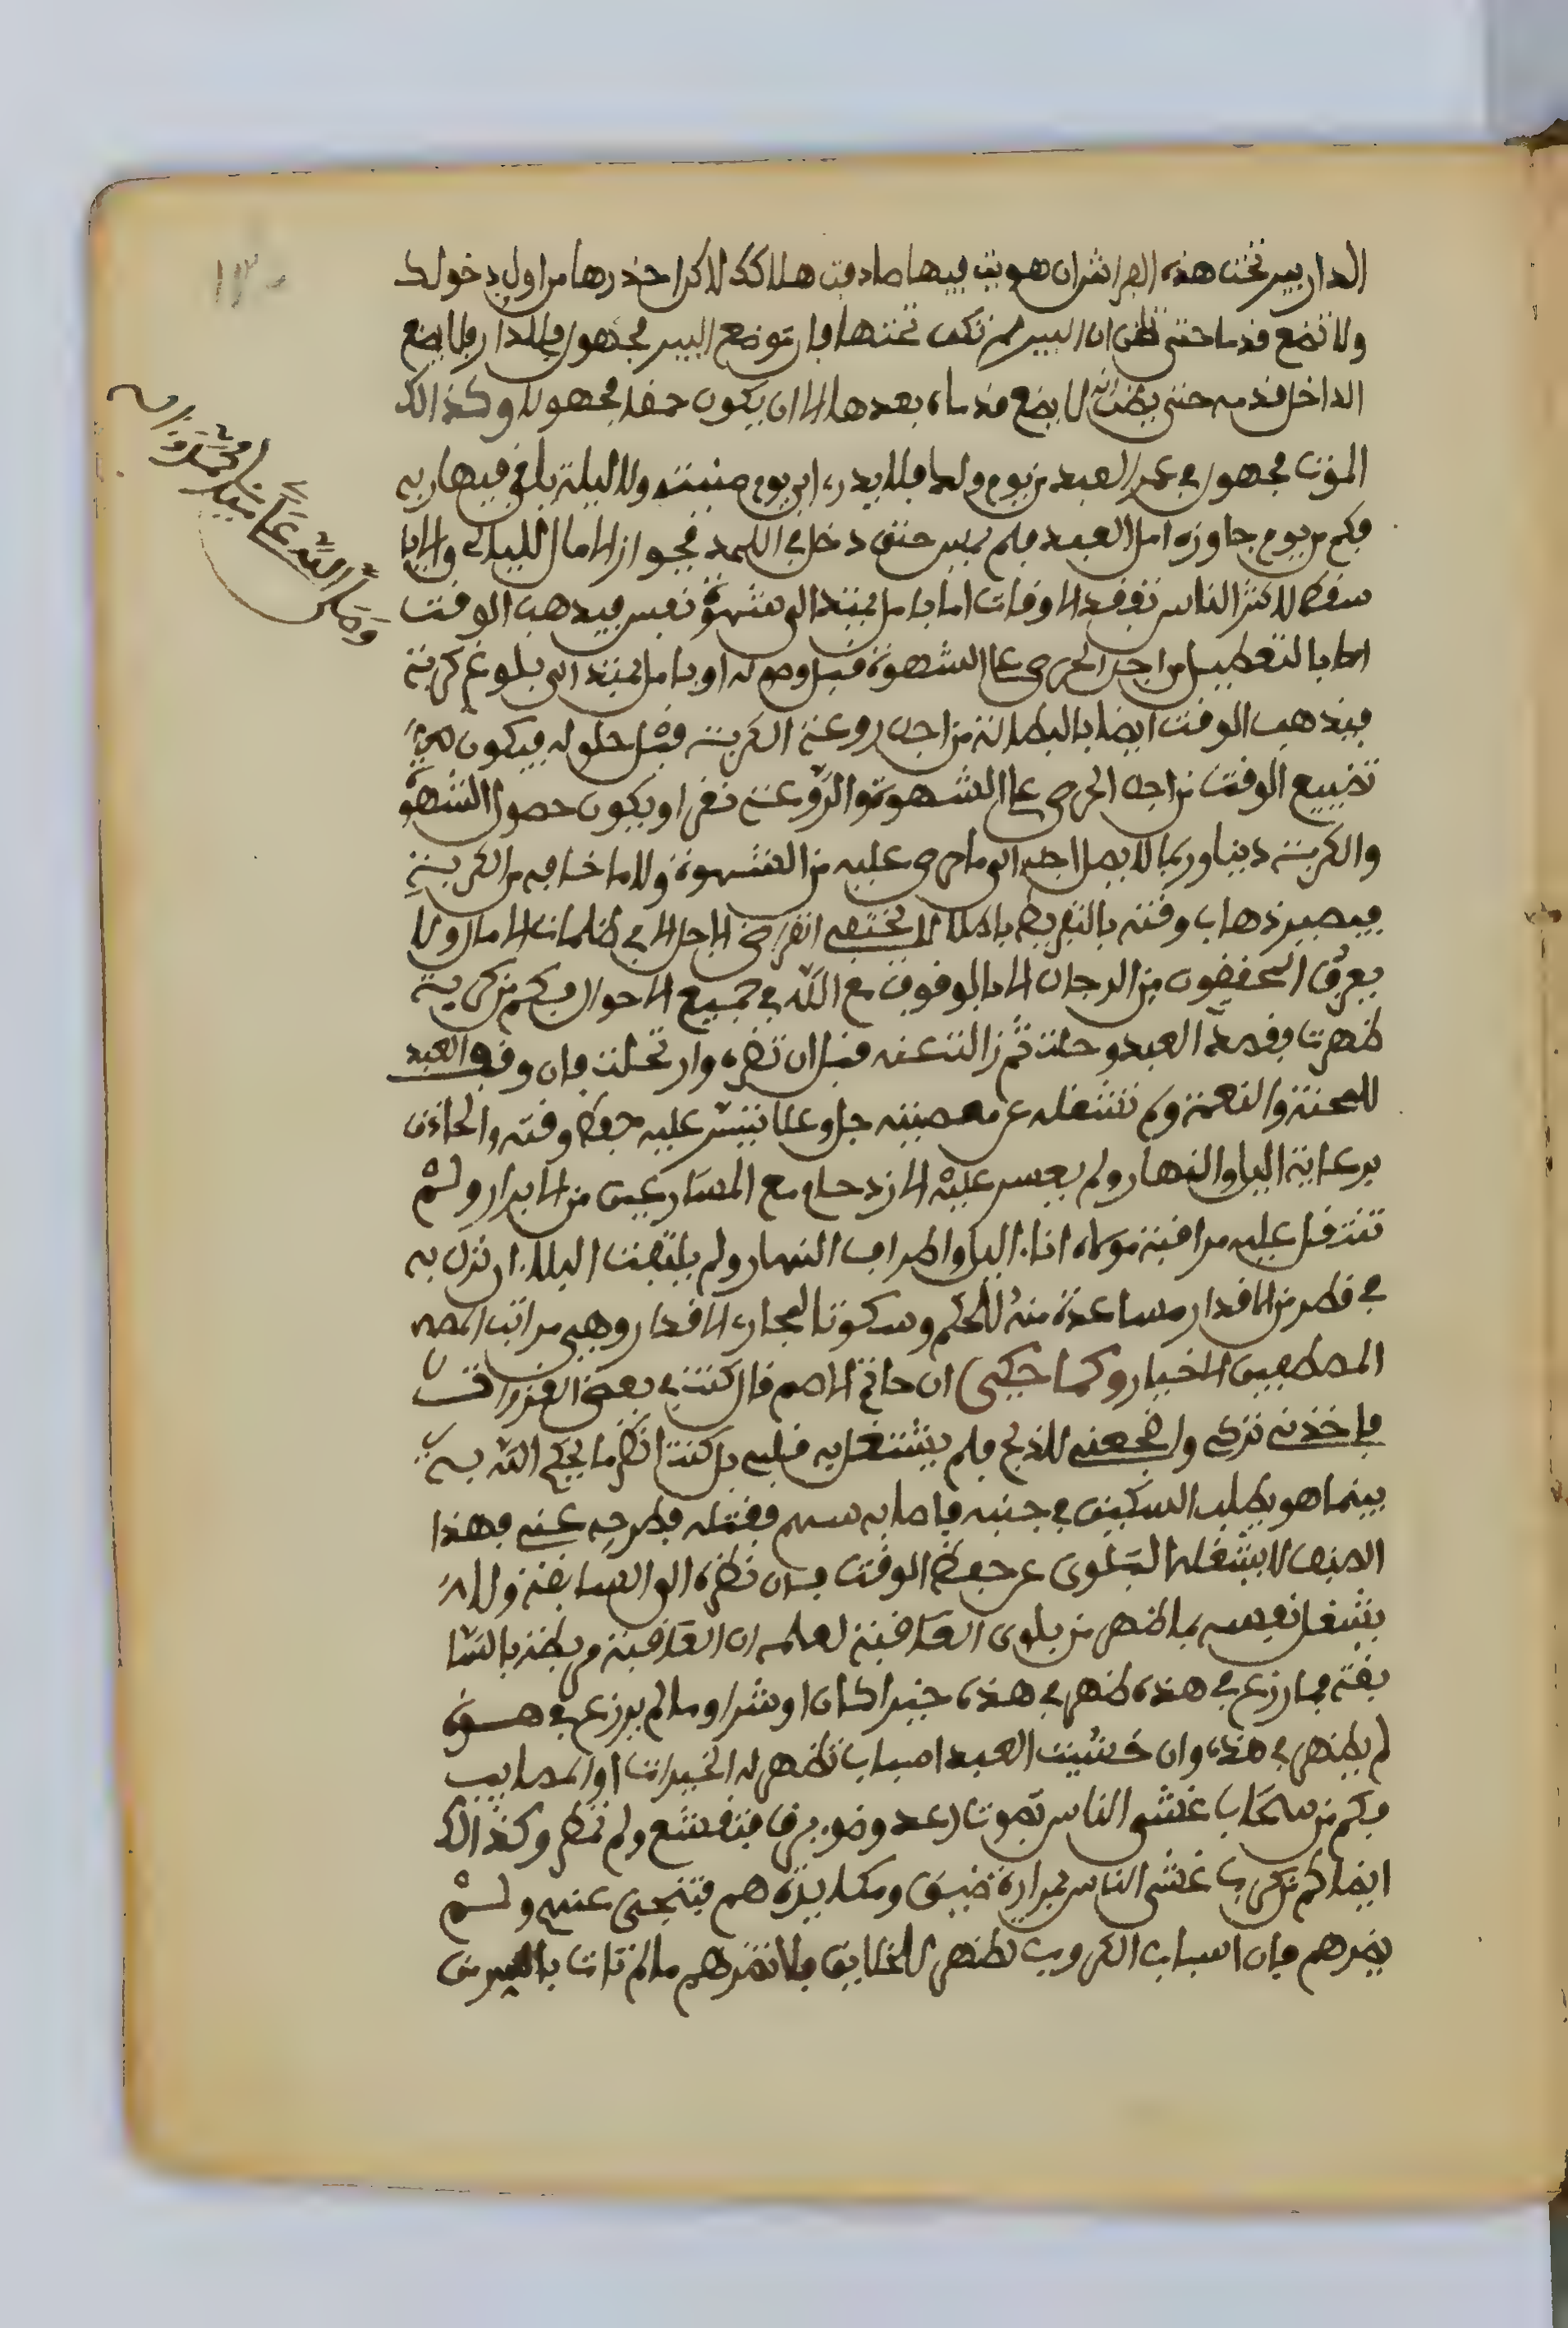 ١٣٠
الدار بير تحت هذه الفراش ان هويت فيها صادفت هلاكك لاكن احذرها من اول دخولك
ولا تضع قدما حتى تظن ان البير لم تكن تحتها فان توضع البير مجهول في الدار فلا يضع
الداخل قدمه حتى يظن انه لا يضع قدماه بعدها الا ان يكون حمقا مجهولا وكذالك
الموت مجهول في عمر العبد من يوم ولد فلا يدر اي يوم منيته ولا ليلة يلقى فيها ربه
فكم من يوم جاوزه امل العبد فلم يسر حتى دخل في اللحد فجواز الامال الليالي والايا
سفط لاكثر الناس تفقد الاوقات اما بامل يمتد الى شهوة نفس فيذهب الوقت
اما بالتعطيل من اجل الحرص على الشهوة قبل وصوله او بامل يمتد الى بلوغ كربة
فيذهب الوقت ايضا بالبطالة من اجل روعة الكربة قبل حلوله فيكون
تضييع الوقت من اجل الحرص على الشهوة والروعة نفر او يكون حصول الشهوة
والكربة دينا وربما لا يصل اجله الى ما حرص عليه من الشهوة ولا ما خافه من الكربة
فيصير ذهاب وقته بالتفريط باطلا لا تختفي انقراض الاجل الا في ظلمات الامال ولا
يعرف المحفضون من الرجال الا بالوقوف مع الله في جميع الاحوال فكم من كربة
ظهرت بفصد العبد وحلت ثم زالت عنه قبل ان تضره وارتحلت فان وقف العبد
للمحنة والنعمة ولم تشغله عن معصيته جل وعلا تيسر عليه حفظ وقته والحاذق
برعاية اليل والنهار ولم يعسر عليه الازدحام مع المسارعين من الابرار ولم
تثقل عليه مراقبة مولاه اناء اليل واطراف النهار ولم يلتفت البلاء ان نزل به
في قطر من الاقدار مساعدة منه للحكم وسكوتا لمجار الاقدار وهي مراتب
المصطفين الاخيار وكما حكى ان حاتم الاصم قال كنت في بعض الغزوات
فاخذني تركي واضجعني للذبح فلم يشتغل به قلبي بل كنت انظر ما يحكم الله به
بينما هو يطلب السكين في جنبه فاصابه سهم فقتله فطرحه عني فهذا
الصنف لا يشغله البلوى عن حفظ الوقت بان نظره الى السابقة ولا
يشغل نفسه بما ظهر من بلوى العاقبة لعلمه ان العاقبة مربطة بالسا
بقة فما رزع في هذه ظهر في هذه خيرا كان او شرا وما لم يرزع في هذه
لم يظهر في هذه وان خشيت العبد اسباب تظهر له الخيرات او المصايب
فكم من سحاب غشى الناس بصوت رعد وضوء برق فتقشع ولم تمطر وكذالك
ايضا كم من كرب غشى الناس بمرارة ضيق ومكابدة هم فتنجى عنهم ولم
يضرهم فان اسباب الكروب تظهر للخلايق فلا تضرهم ما لم تات بالضر من
وصلى الله على سيدنا محمد واله